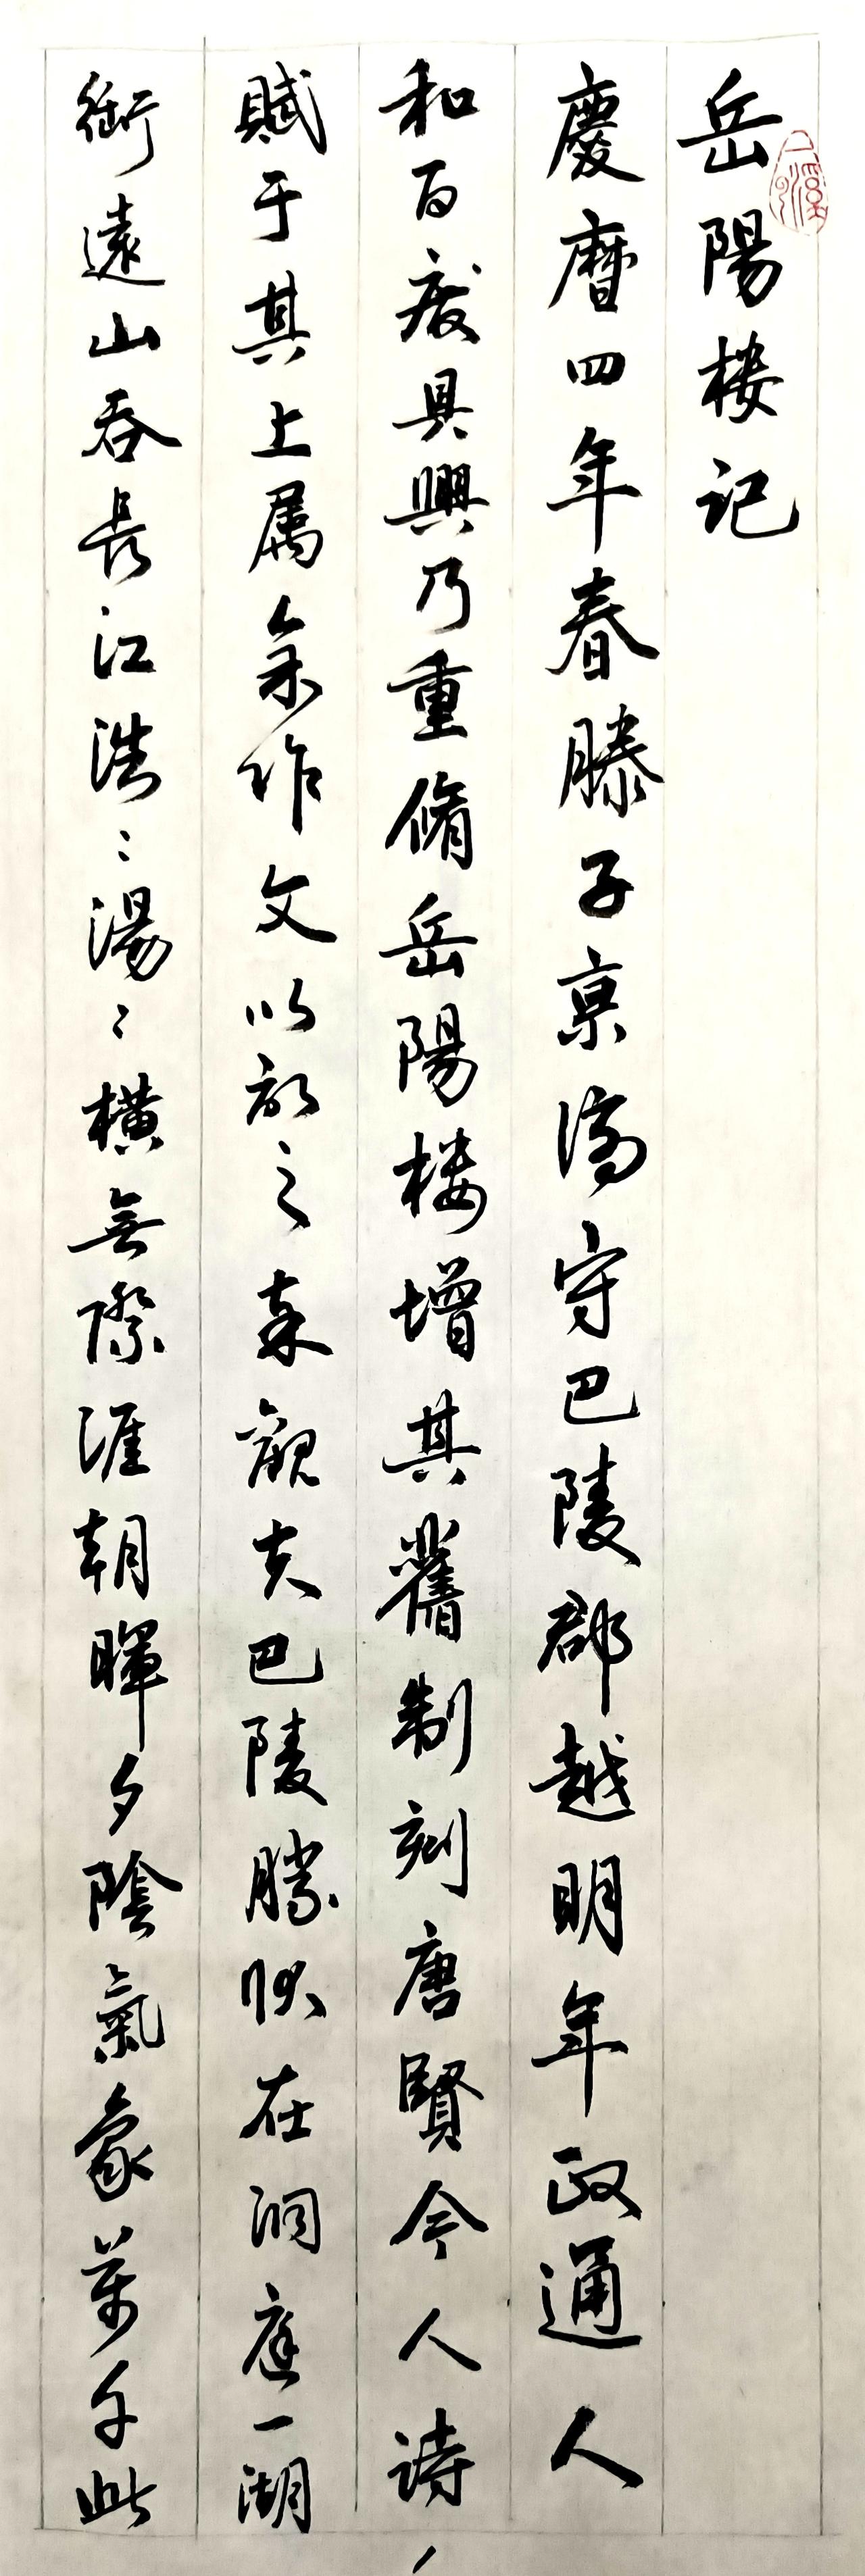 岳陽楼记
慶曆四年春滕子京谪守巴陵郡越明年政通人
和百廢具興乃重脩岳陽楼增其舊制刻唐賢今人诗
賦于其上属余作文以記之予觀夫巴陵勝状在洞庭一湖
銜遠山吞長江浩〻湯〻橫無際涯朝暉夕陰氣象萬千此